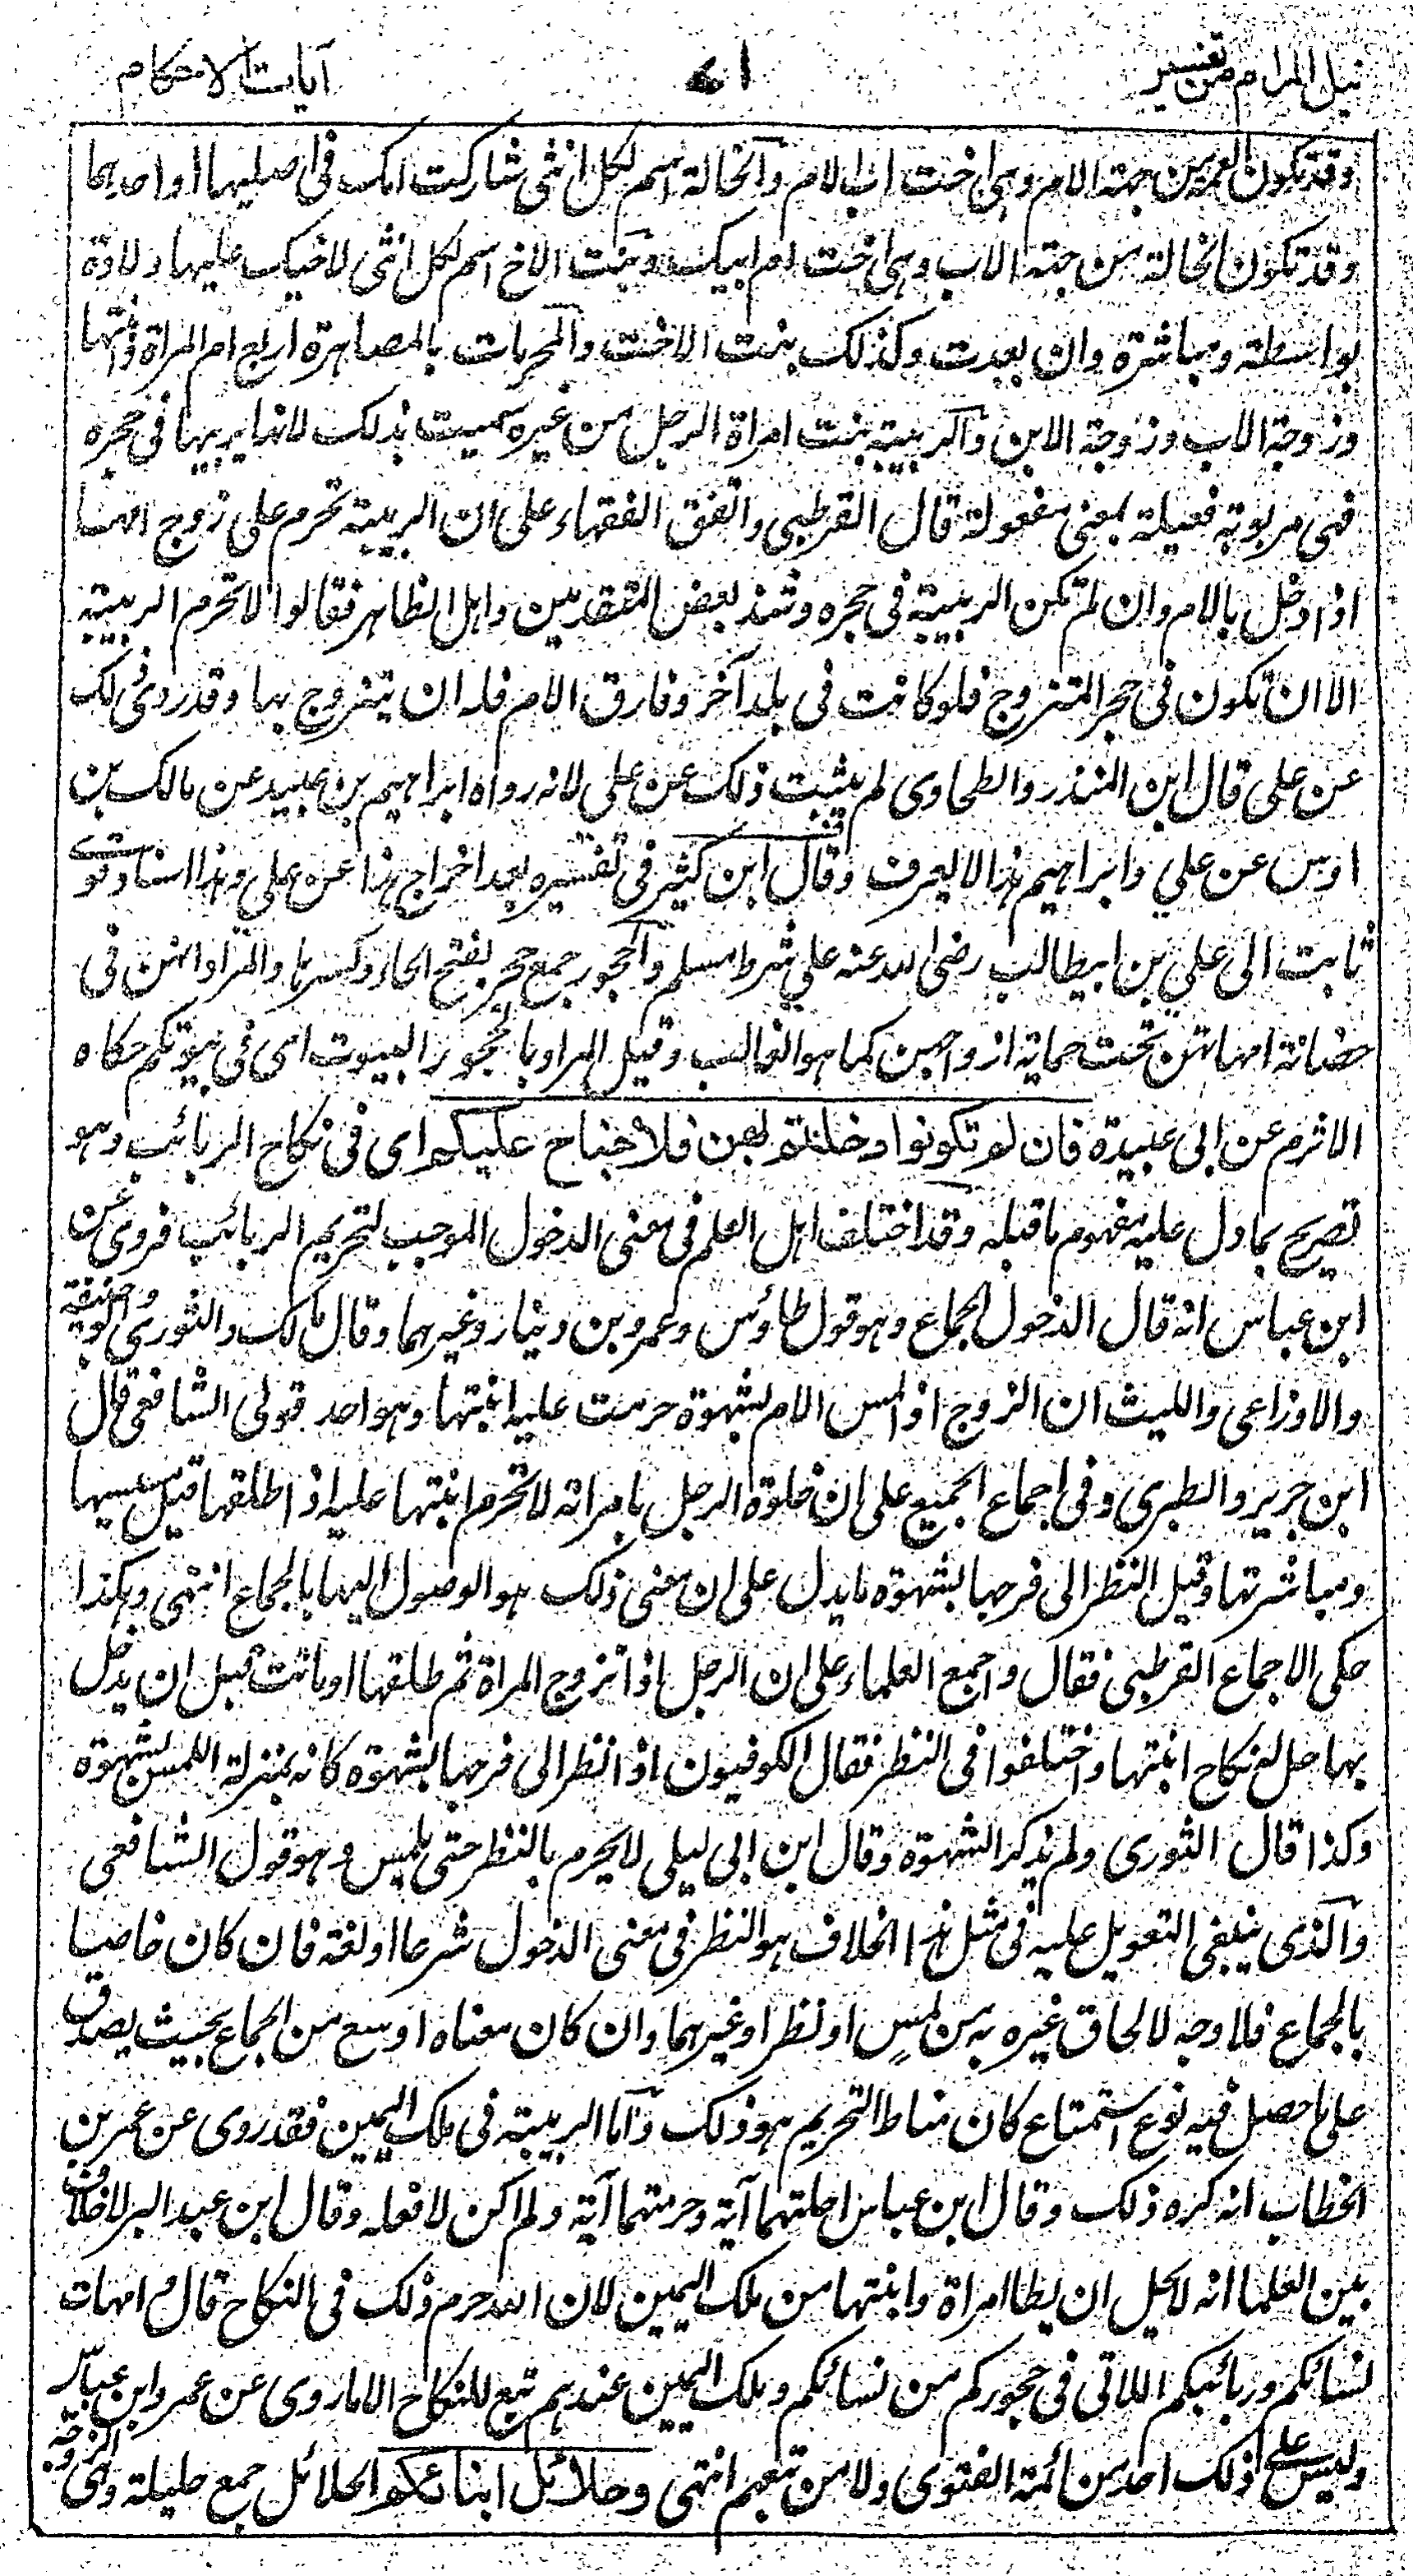 نيل المرام من تفسير
آيات الاحكام
وقد تكون العمة من جهة الام وهى اخت اب الام والخالة اسم لكل انثى شاركت امك فى اصليها او احدهما
وقد تكون الخالة من جهة الاب وهى اخت ام ابيك وبنت الاخ اسم لكل انثى لاخيك عليها ولادة
بواسطة ومباشرة وان بعدت وكذلك بنت الاخت والمحرمات بالمصاهرة اربع ام المراة وابنتها
وزوجة الاب وزوجة الابن والربيبة بنت امراة الرجل من غيره سميت بذلك لانه يربيها فى حجره
فهى مربوبة فعيلة بمعنى مفعولة قال القرطبى واتفق الفقهاء على ان الربيبة تحرم على زوج امها
اذا دخل بالام وان لم تكن الربيبة فى حجره وشذ بعض المتقدمين واهل الظاهر فقالوا لا تحرم الربيبة
الا ان تكون فى حجر المتزوج فلو كانت فى بلد آخر وفارق الام فله ان يتزوج بها وقد روى ذلك
عن على قال ابن المنذر والطحاوى لم يثبت ذلك عن على لانه رواه ابراهيم بن عبيد عن مالك بن
اوس عن على وابراهيم هذا لا يعرف وقال ابن كثير فى تفسيره بعد اخراج هذا عن على وهذا اسناد قوى
ثابت الى على بن ابيطالب رضى الله عنه على شرط مسلم والحجور جمع حجر بفتح الحاء وكسرها والمراد انهن فى
حضانة امهاتهن تحت حماية ازواجهن كما هو الغالب وقيل المراد بالحجور البيوت اى فى بيوتكم حكاه
الاثرم عن ابى عبيدة فان لم تكونوا دخلتم بهن فلا جناح عليكم اى فى نكاح الربائب وهو
تصريح بما دل عليه مفهوم ما قبله وقد اختلف اهل العلم فى معنى الدخول الموجب لتحريم الربائب فروى عن
ابن عباس انه قال الدخول الجماع وهو قول طاؤس وعمرو بن دينار وغيرهما وقال مالك والثورى وابو حنيفة
والاوزاعى والليث ان الزوج اذا لمس الام بشهوة حرمت عليه ابنتها وهو احد قولى الشافعى قال
ابن جرير والطبرى وفى اجماع الجميع على ان خلوة الرجل بامراته لا تحرم ابنتها عليه اذا طلقها قبل مسيسها
ومباشرتها وقبل النظر الى فرجها بشهوة ما يدل على ان معنى ذلك هو الوصول اليها بالجماع انتهى وهكذا
حكى الاجماع القرطبى فقال واجمع العلماء على ان الرجل اذا تزوج المراة ثم طلقها او ماتت قبل ان يدخل
بها حل له نكاح ابنتها واختلفوا فى النظر فقال الكوفيون اذا نظر الى فرجها بشهوة كانه بمنزلة اللمس بشهوة
وكذا قال الثورى ولم يذكر الشهوة وقال ابن ابى ليلى لا يحرم بالنظر حتى يلمس وهو قول الشافعى
والذى ينبغى التعويل عليه فى مثل هذا الخلاف هو النظر فى معنى الدخول شرعا او لغة فان كان خاصا
بالجماع فلا وجه لالحاق غيره به من لمس او نظر او غيرهما وان كان معناه اوسع من الجماع بحيث يصدق
على ما حصل فيه نوع استمتاع كان مناط التحريم هو ذلك واما الربيبة فى ملك اليمين فقد روى عن عمر بن
الخطاب انه كره ذلك وقال ابن عباس احلتهما آية وحرمتهما آية ولم اكن لافعله وقال ابن عبد البر لا خلاف
بين العلما انه لا يحل ان يطا امراة وابنتها من ملك اليمين لان الله حرم ذلك فى النكاح قال وامهات
نسائكم وربائبكم اللاتى فى حجوركم من نسائكم وملك اليمين عندهم تبع للنكاح الا ما روى عن عمر وابن عباس
وليس على ذلك احد من ائمة الفتوى ولا من تبعهم انتهى وحلائل ابنائكم الحلائل جمع حليلة وهى الزوجة